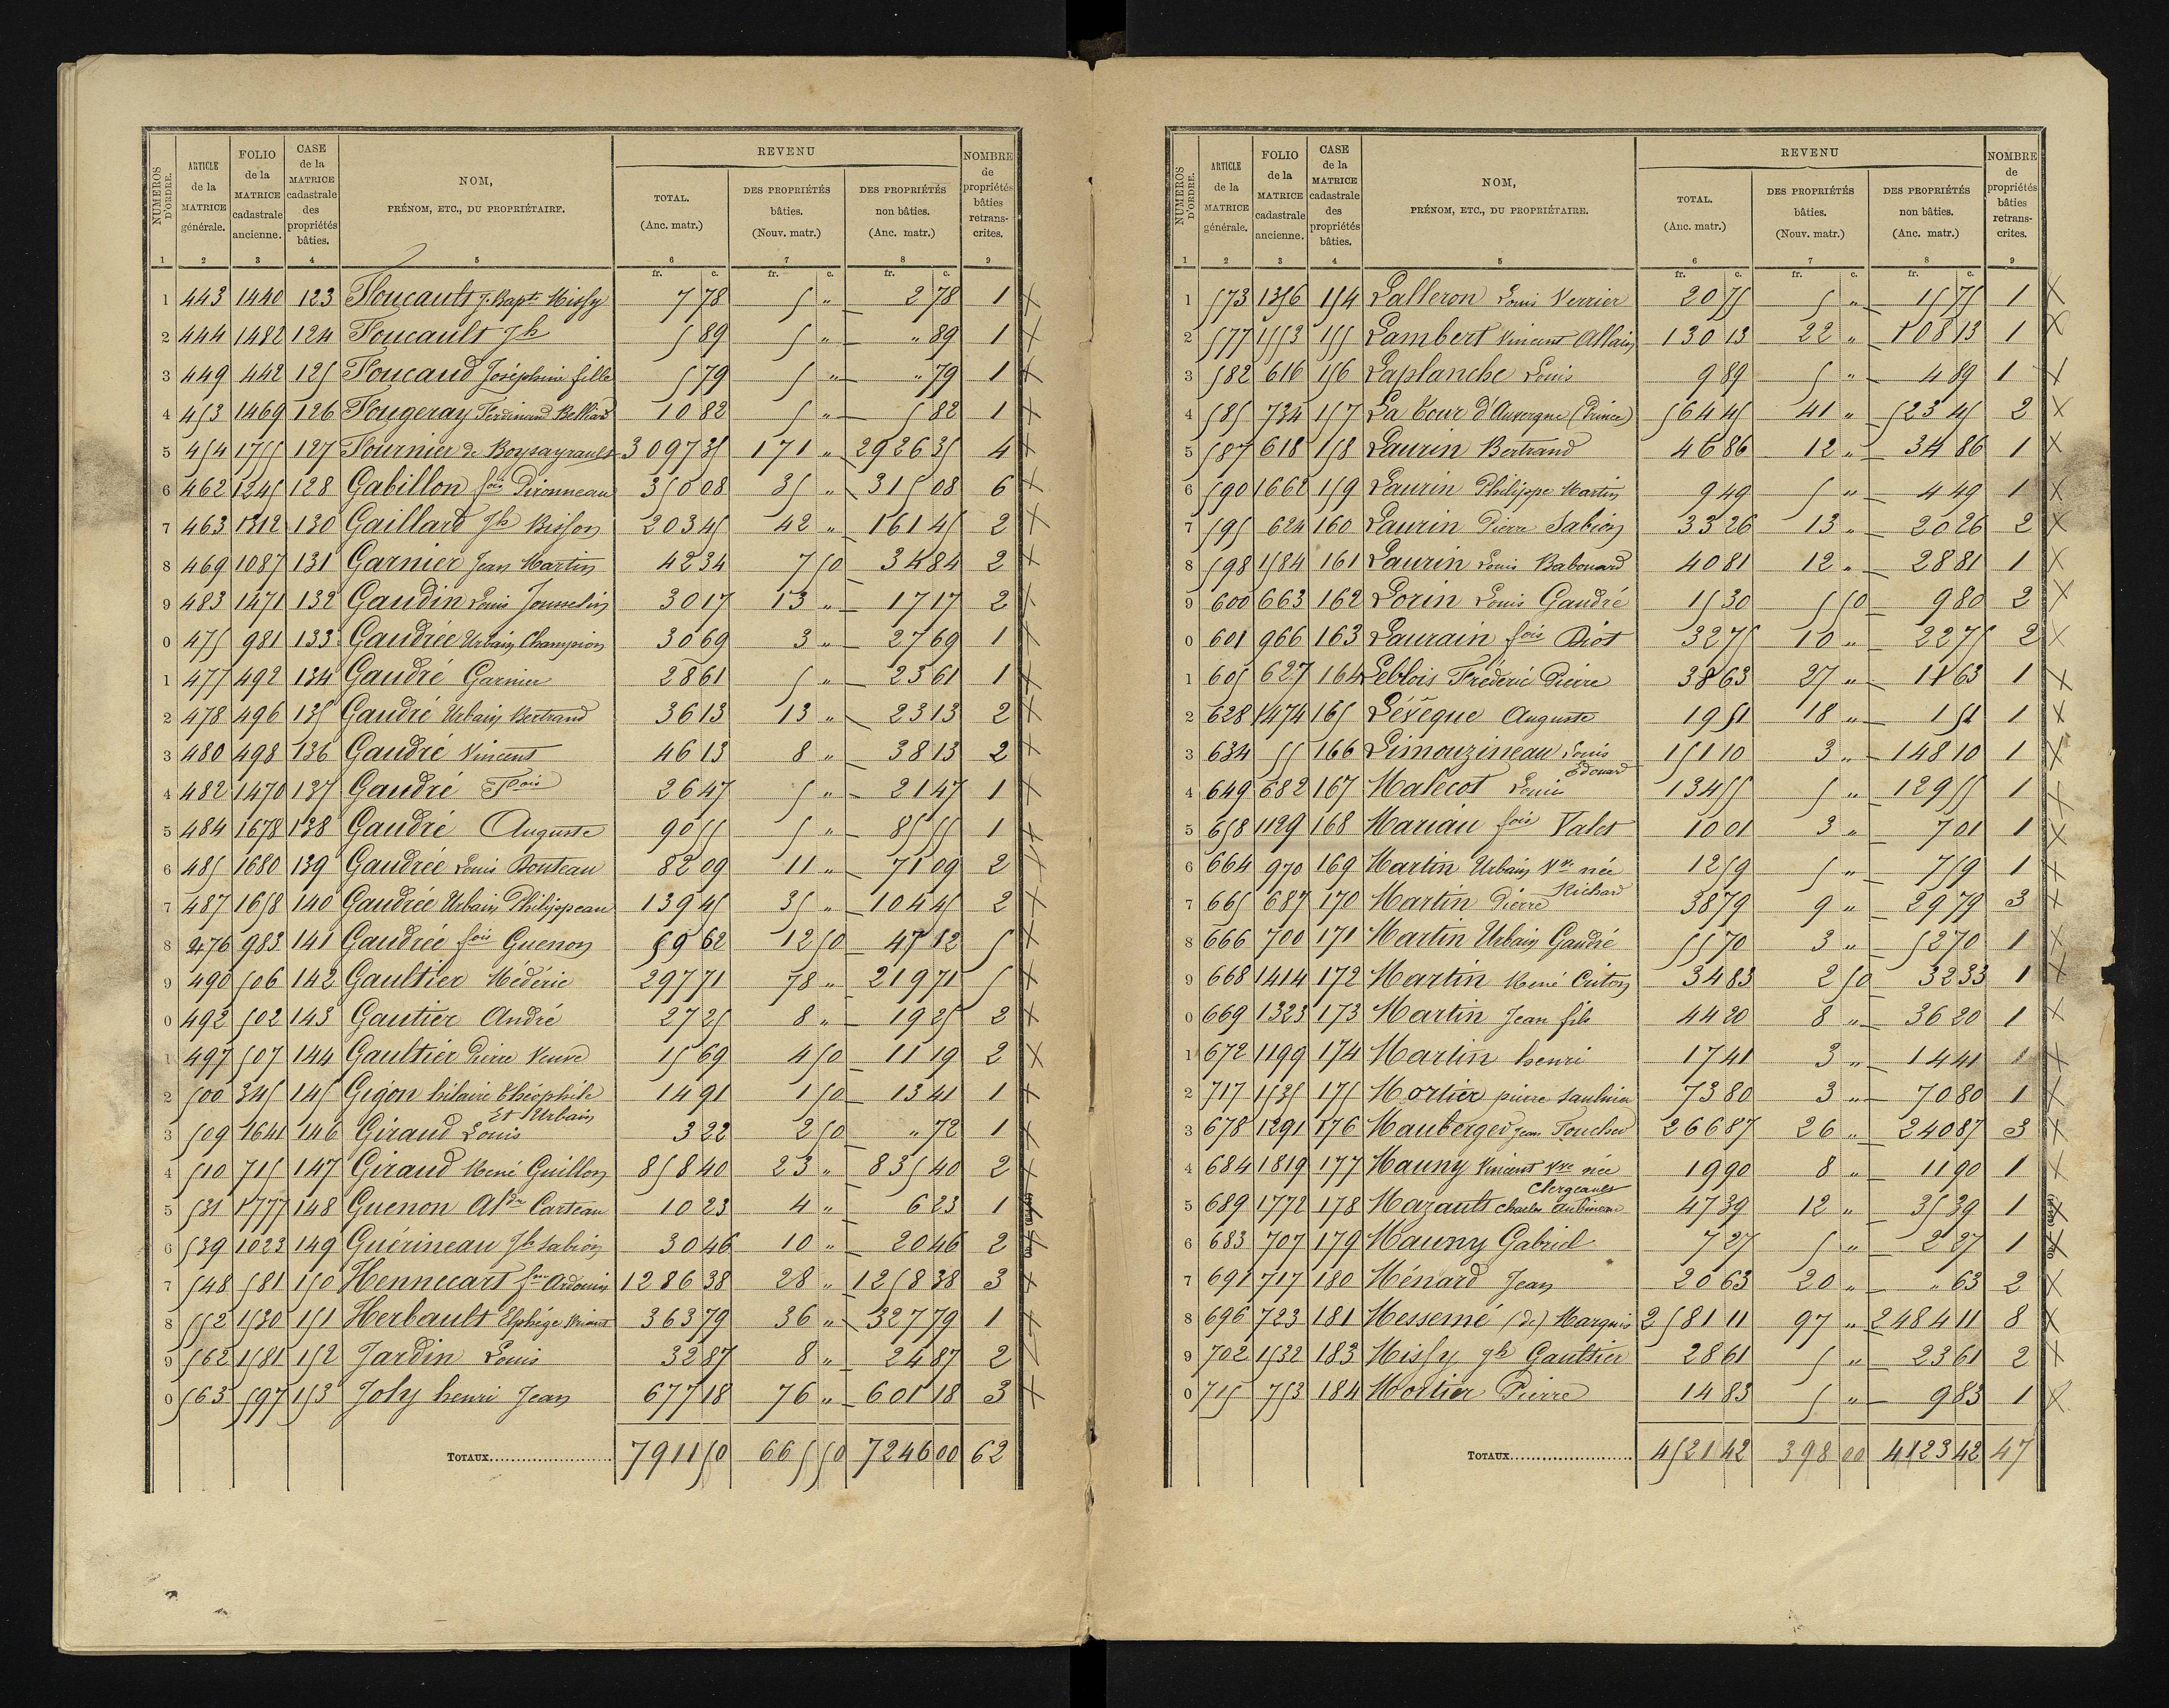 NUMÉROS D'ORDRE. | ARTICLE de la MATRICE générale. | FOLIO de la MATRICE cadastrale ancienne. | CASE de la MATRICE cadastrale des propriétés bâties. | NOM, PRÉNOM, ETC., DU PROPRIÉTAIRE. | REVENU TOTAL. (Anc. matr.) | DES PROPRIÉTÉS bâties. (Nouv. matr.) | DES PROPRIÉTÉS non bâties. (Anc. matr.) | NOMBRE de propriétés bâties retranscrites.
1 2 3 4 5 6 7 8 9
fr. c. fr. c. fr. c.
1 443 1440 123 Foucault J. Bapt. Missy 7 78 5 " 2 78 1 x
2 444 1482 124 Foucault Jh 5 89 5 " " 89 1 x
3 449 442 125 Foucaud Joséphine fille 5 79 5 " " 79 1 x
4 453 1469 126 Fougeray Ferdinand Belliard 10 82 5 " 5 82 1 x
5 454 1755 127 Fournier de Boysayrault 3097 35 171 " 2926 35 4 x
6 462 1245 128 Gabillon fois Pironneau 350 08 35 " 315 08 6 x
7 463 1312 130 Gaillard Jh Bisson 203 45 42 " 161 45 2 x
8 469 1087 131 Garnier Jean Martin 42 34 7 50 34 84 2 x
9 483 1471 132 Gaudin Louis Jousselin 30 17 13 " 17 17 2 x
0 475 981 133 Gaudrée Urbain Champion 30 69 3 " 27 69 1 x
1 477 492 134 Gaudré Garnier 28 61 5 " 23 61 1 x
2 478 496 135 Gaudré Urbain Bertrand 36 13 13 " 23 13 2 x
3 480 498 136 Gaudré Vincent 46 13 8 " 38 13 2 x
4 482 1470 137 Gaudré Fois 26 47 5 " 21 47 1 x
5 484 1678 138 Gaudré Auguste 90 55 5 " 85 55 1 x
6 485 1680 139 Gaudrée Louis Bonteau 82 09 11 " 71 09 2 x
7 487 1658 140 Gaudrée Urbain Philippeau 139 45 35 " 104 45 2 x
8 476 983 141 Gaudrée fois Guenon 59 62 12 50 47 12 5 x
9 490 506 142 Gaultier Médéric 297 71 78 " 219 71 5 x
0 492 502 143 Gautier André 27 25 8 " 19 25 2 x
1 497 507 144 Gaultier Pierre Veuve 15 69 4 50 11 19 2 x
2 500 345 145 Gigon hilaire théophile 14 91 1 50 13 41 1 x
Et Urbain
3 509 1641 146 Giraud Louis 3 22 2 50 " 72 1 x
4 510 715 147 Giraud René Guillon 858 40 23 " 835 40 2 x
5 531 1777 148 Guenon Aldre Carteau 10 23 4 " 6 23 1
6 539 1023 149 Guérineau Jh Sabion 30 46 10 " 20 46 2
7 548 581 150 Hennecart fçois Ardouin 1286 38 28 " 1258 38 3 x
8 552 1530 151 Herbault Elphége 363 79 36 " 327 79 1 x
9 562 1581 152 Jardin Louis 32 87 8 " 24 87 2 x
0 563 597 153 Joly henri Jean 677 18 76 " 601 18 3 x
TOTAUX 7911 50 665 50 7246 00 62
NUMÉROS D'ORDRE. | ARTICLE de la MATRICE générale. | FOLIO de la MATRICE cadastrale ancienne. | CASE de la MATRICE cadastrale des propriétés bâties. | NOM, PRÉNOM, ETC., DU PROPRIÉTAIRE. | REVENU TOTAL. (Anc. matr.) | DES PROPRIÉTÉS bâties. (Nouv. matr.) | DES PROPRIÉTÉS non bâties. (Anc. matr.) | NOMBRE de propriétés bâties retranscrites.
1 2 3 4 5 6 7 8 9
fr. c. fr. c. fr. c.
1 573 1356 154 Lalleron Louis Verrier 20 75 5 " 15 75 1 x
2 577 1553 155 Lambert Vincent Allain 130 13 22 " 108 13 1 x
3 582 616 156 Laplanche Louis 9 89 5 " 4 89 1 x
4 585 734 157 La Tour d'Auvergne (Prince) 564 45 41 " 523 45 2 x
5 587 618 158 Laurin Bertrand 46 86 12 " 34 86 1 x
6 590 1662 159 Laurin Philippe Martin 9 49 5 " 4 49 1 x
7 595 624 160 Laurin Pierre Sabion 33 26 13 " 20 26 2 x
8 598 1584 161 Laurin Louis Babouard 40 81 12 " 28 81 1 x
9 600 663 162 Lorin Louis Gaudré 15 30 5 50 9 80 2 x
0 601 966 163 Laurain fois Biot 32 75 10 " 22 75 2 x
1 605 627 164 Leblois Frédéric Pierre 38 63 27 " 11 63 1 x
2 628 1474 165 Lévêque Auguste 19 51 18 " 1 51 1 x
3 634 55 166 Limouzineau Louis 151 10 3 " 148 10 1 x
Edouard
4 649 682 167 Malecot Louis 134 55 5 " 129 55 1 x
5 658 1129 168 Mariau fois Valet 10 01 3 " 7 01 1 x
6 664 970 169 Martin Urbain Vve née 12 59 5 " 7 59 1 x
Richard
7 665 687 170 Martin Pierre 38 79 9 " 29 79 3 x
8 666 700 171 Martin Urbain Gaudré 55 70 3 " 52 70 1 x
9 668 1414 172 Martin René Criton 34 83 2 50 32 33 1 x
0 669 1323 173 Martin Jean fils 44 20 8 " 36 20 1 x
1 672 1199 174 Martin henri 17 41 3 " 14 41 1 x
2 717 1535 175 Mortier pierre Saulnier 73 80 3 " 70 80 1 x
3 678 1291 176 Mauberger Jean Fouchard 266 87 26 " 240 87 3 x
4 684 1819 177 Mauny Vincent Vve née 19 90 8 " 11 90 1 x
Clergeault
5 689 1772 178 Mazault Charles Aubineau 47 39 12 " 35 39 1 x
6 683 707 179 Mauny Gabriel 7 27 5 " 2 27 1 x
7 691 717 180 Ménard Jean 20 63 20 " " 63 2 x
8 696 723 181 Messemé (de) Marquis 2581 11 97 " 2484 11 8 x
9 702 1532 183 Missy Jh Gaultier 28 61 5 " 23 61 2 x
0 715 753 184 Mortier Pierre 14 83 5 " 9 83 1 x
TOTAUX 4521 42 398 00 4123 42 47